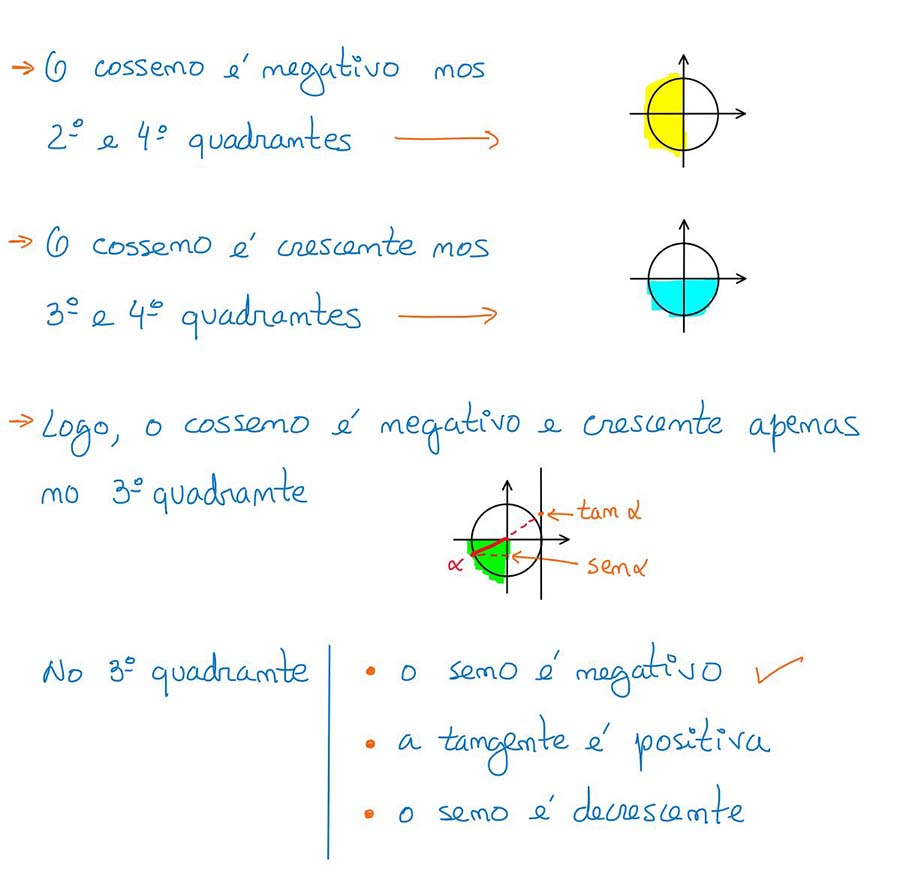 → O cosseno é negativo nos
2º e 4º quadrantes →
→ O cosseno é crescente nos
3º e 4º quadrantes →
→ Logo, o cosseno é negativo e crescente apenas
no 3º quadrante
tan α
α
sen α
No 3º quadrante
• o seno é negativo ✓
• a tangente é positiva
• o seno é decrescente